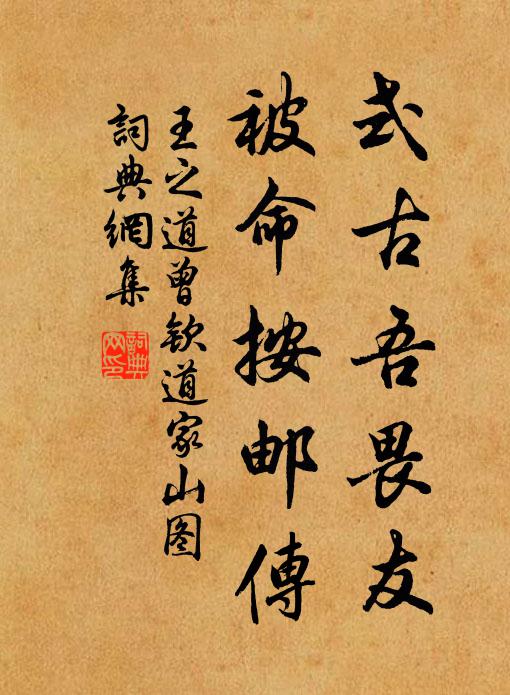 式古吾畏友
被命按邮傳
王之道曾钦道家山图
詞典網集
詞典
网印